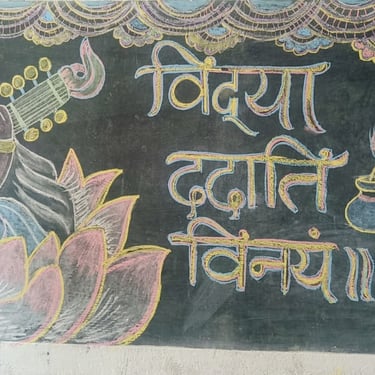 विद्या
ददाति
विनयं॥